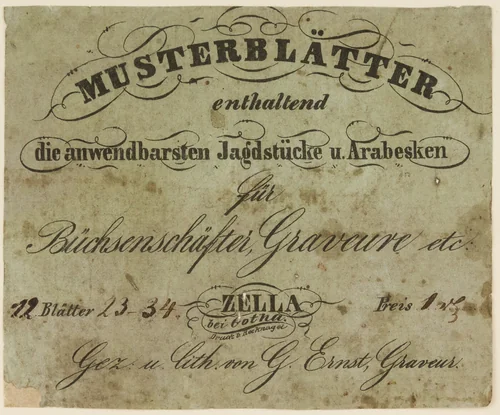 MUSTERBLÄTTER
enthaltend
die anwendbarsten Jagdstücke u. Arabesken
für
Büchsenschäfter, Graveure etc.
12 Blätter 23-34. ZELLA Preis 1
bei Gotha.
Druck b. Recknagel
Gez: u. lith. von G. Ernst, Graveur.